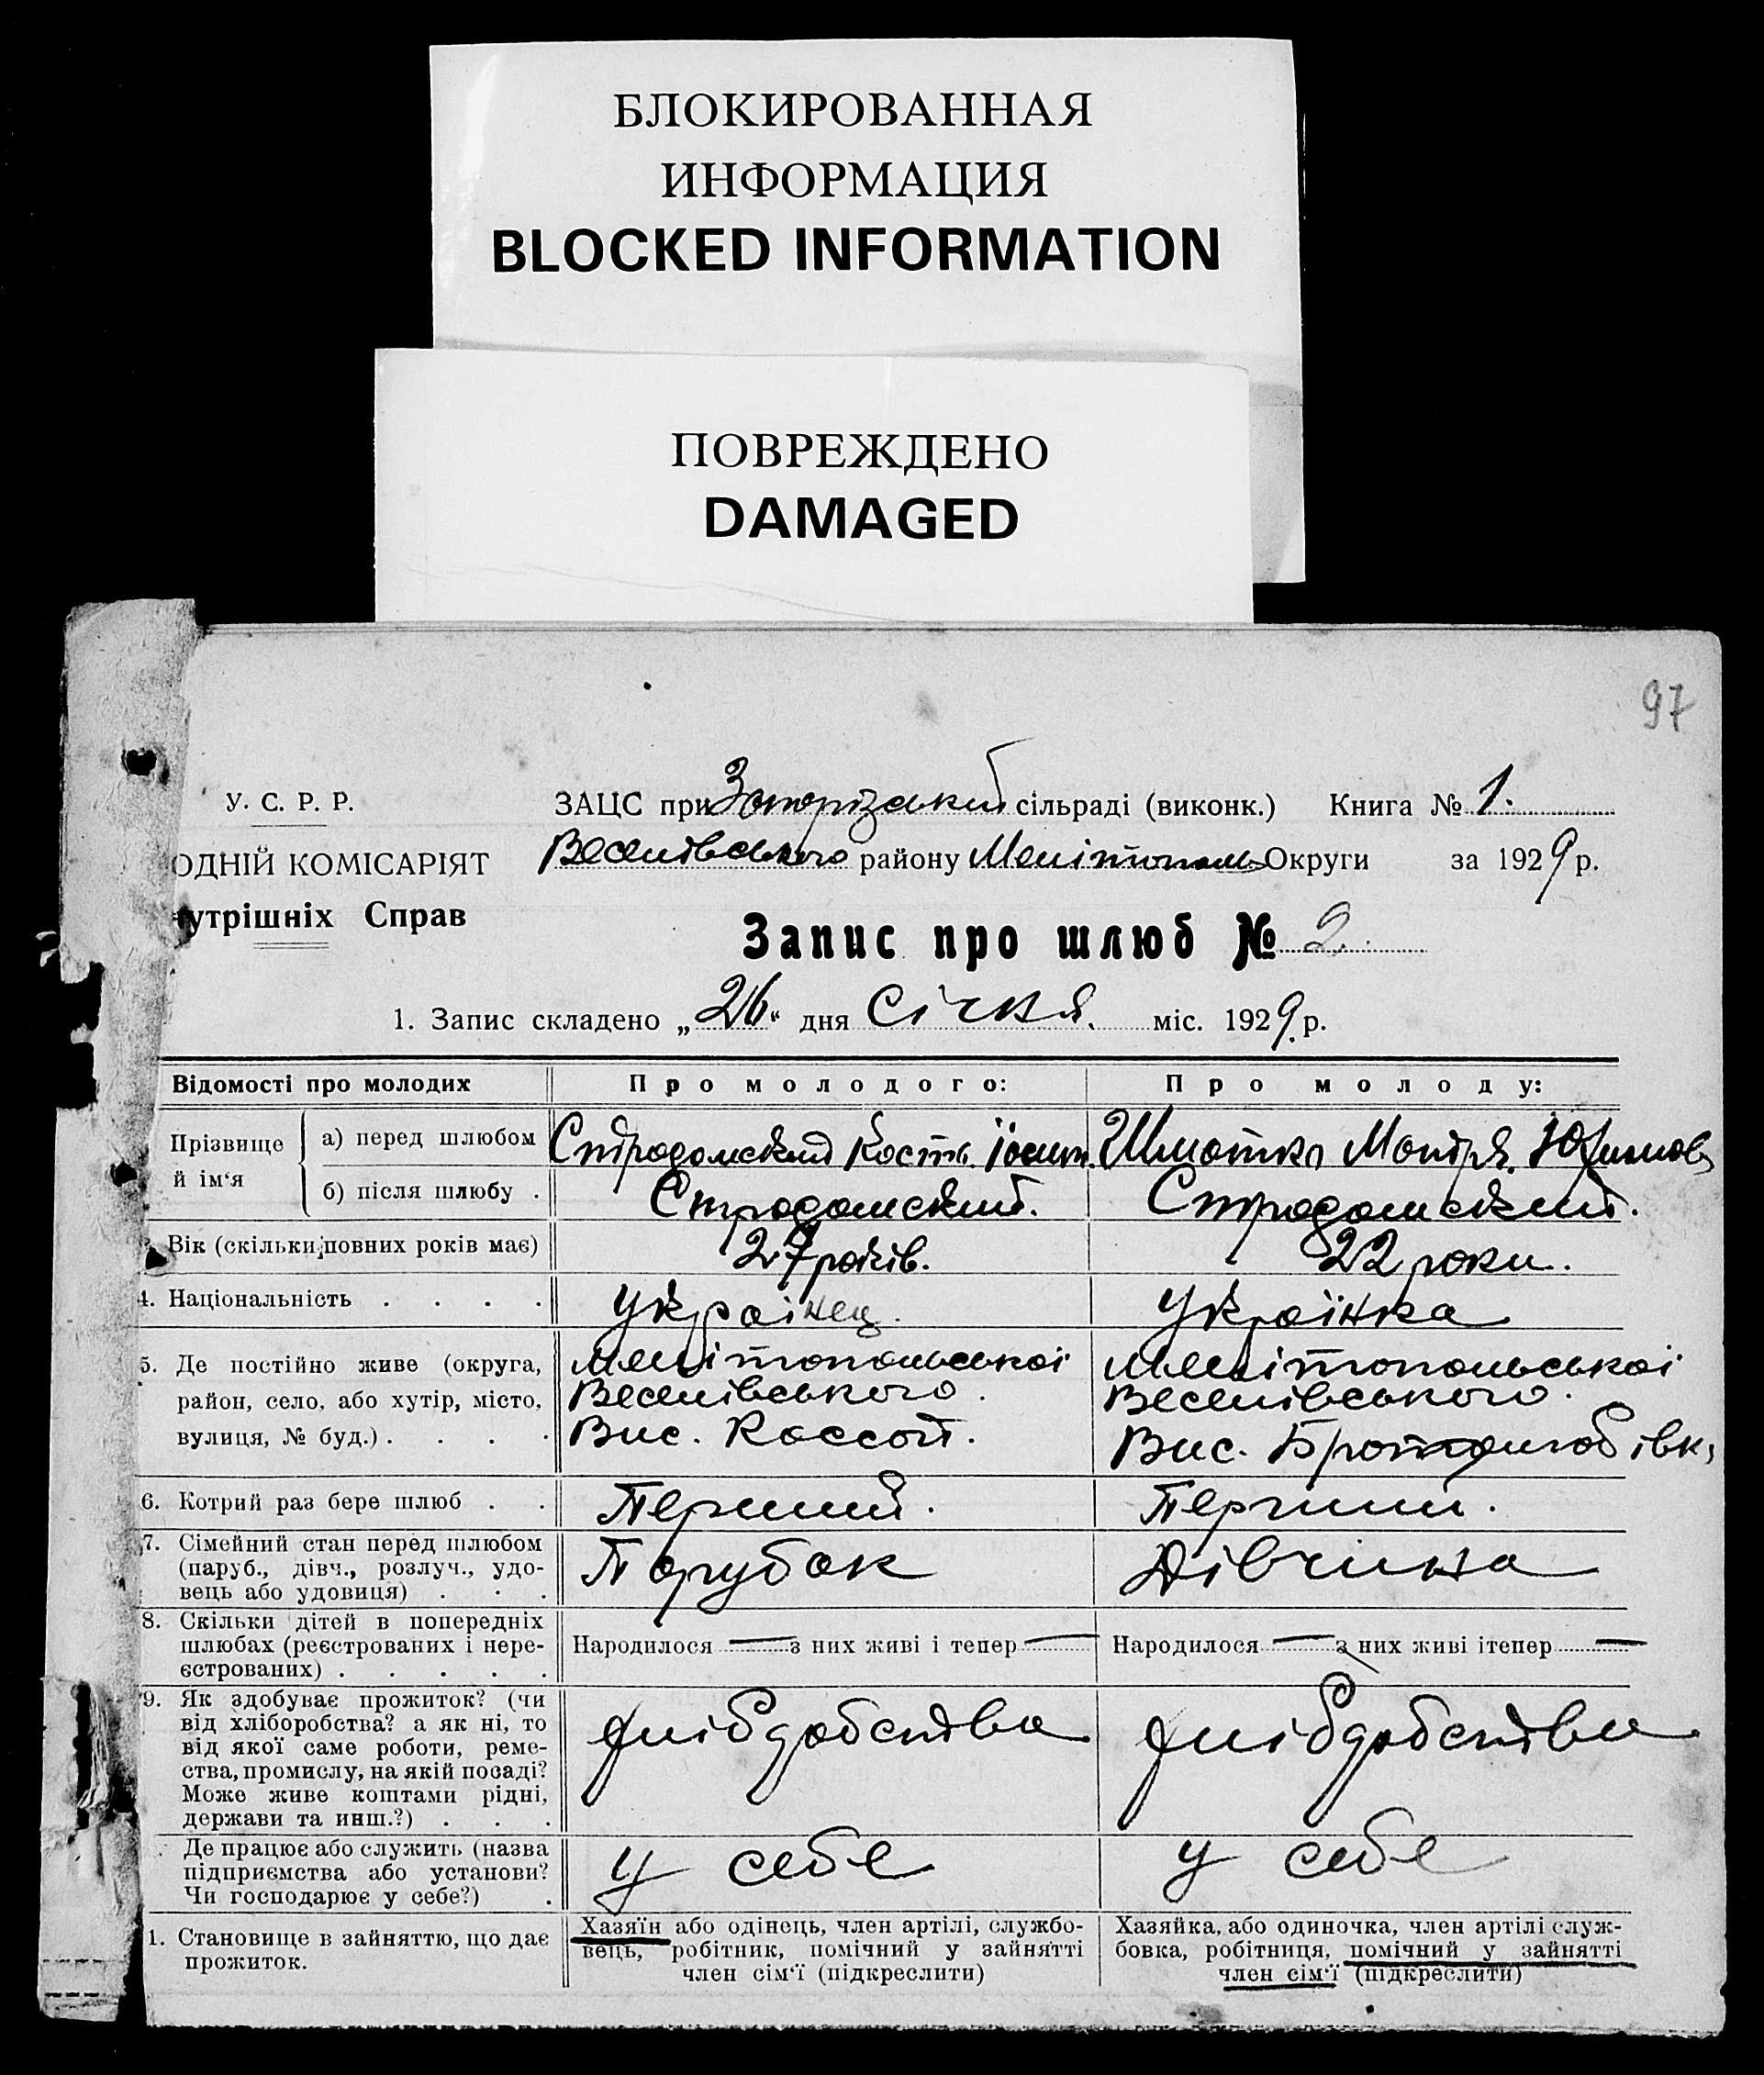 БЛОКИРОВАННАЯ
ИНФОРМАЦИЯ
BLOCKED INFORMATION
ПОВРЕЖДЕНО
DAMAGED
97
У. С. Р. Р.
ЗАЦС при Запорізький сільраді (виконк.) Книга № 1.
ОДНІЙ КОМІСАРІЯТ
Веселівського району Мелітополь Округи за 1929 р.
утрішніх Справ
Запис про шлюб № 2.
1. Запис складено „26“ дня Січня. міс. 1929 р.
Відомості про молодих
Про молодого:
Про молоду:
Прізвище й ім‘я
а) перед шлюбом
Стродомский Кость Іосип.
Шматко Мотря
б) після шлюбу .
Стродомский.
Стродомский.
Вік (скільки повних років має)
27 років.
22 роки.
4. Національність . . . .
Українец.
Українка
5. Де постійно живе (округа,
район, село, або хутір, місто,
вулиця, № буд.) . . . .
Мелітопольської
Веселівського.
Вис.
Мелітопольської
Веселівського.
Вис.
6. Котрий раз бере шлюб . .
Перший.
Перший.
7. Сімейний стан перед шлюбом
(паруб., дівч., розлуч., удо-
вець або удовиця) . . .
Парубок
Дівчина
8. Скільки дітей в попередніх
шлюбах (реєстрованих і нере-
єстрованих) . . . . .
Народилося — з них живі і тепер —
Народилося — з них живі ітепер —
9. Як здобуває прожиток? (чи
від хліборобства? а як ні, то
від якої саме роботи, реме-
ства, промислу, на якій посаді?
Може живе коштами рідні,
держави та инш.?) . . .
Де працює або служить (назва
підприємства або установи?
Чи господарює у себе?) .
у себе
у себе
1. Становище в зайняттю, що дає
прожиток.
Хазяїн або одінець, член артілі, службо-
вець, робітник, помічний у зайнятті
член сім‘ї (підкреслити)
Хазяйка, або одиночка, член артілі служ-
бовка, робітниця, помічний у зайнятті
член сім‘ї (підкреслити)